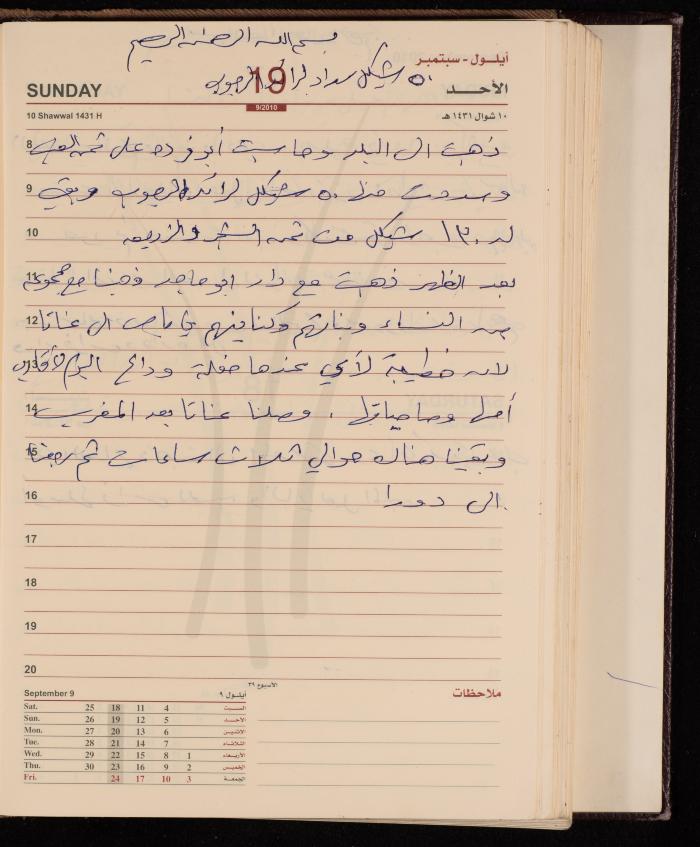 بسم الله الرحمن الرحيم
أيلول - سبتمبر
٥٠ شيكل سداد لرائد الرجوب
SUNDAY 19 الأحد
9/2010
10 Shawwal 1431 H ١٠ شوال ١٤٣١ هـ
8 ذهبت الى البلد وحاسبت أبو فرده على ثمن
9 وسددت منها ٥٠ شيكل لرائد الرجوب وبقي
10 له ١٣٠ شيكل من ثمن الشجر والزريعه
11 بعد الظهر ذهبت مع دار ابو ماجد وذهبنا مع مجموعة
12 من النساء وبناتهم وكناينهم في باص الى عناتا
13 لانه خطيبة لأي عندها حفلة وداع اليوم
14 أهلها وصاحباتها . وصلنا عناتا بعد المغرب
15 وبقينا هناك حوالي ثلاث ساعات ثم رجعنا
16 الى دورا.
17
18
19
20
الأسبوع ٣٩
ملاحظات
September 9 أيلول ٩
Sat. 25 18 11 4 السبت
Sun. 26 19 12 5 الأحد
Mon. 27 20 13 6 الاثنين
Tue. 28 21 14 7 الثلاثاء
Wed. 29 22 15 8 1 الأربعاء
Thu. 30 23 16 9 2 الخميس
Fri. 24 17 10 3 الجمعة